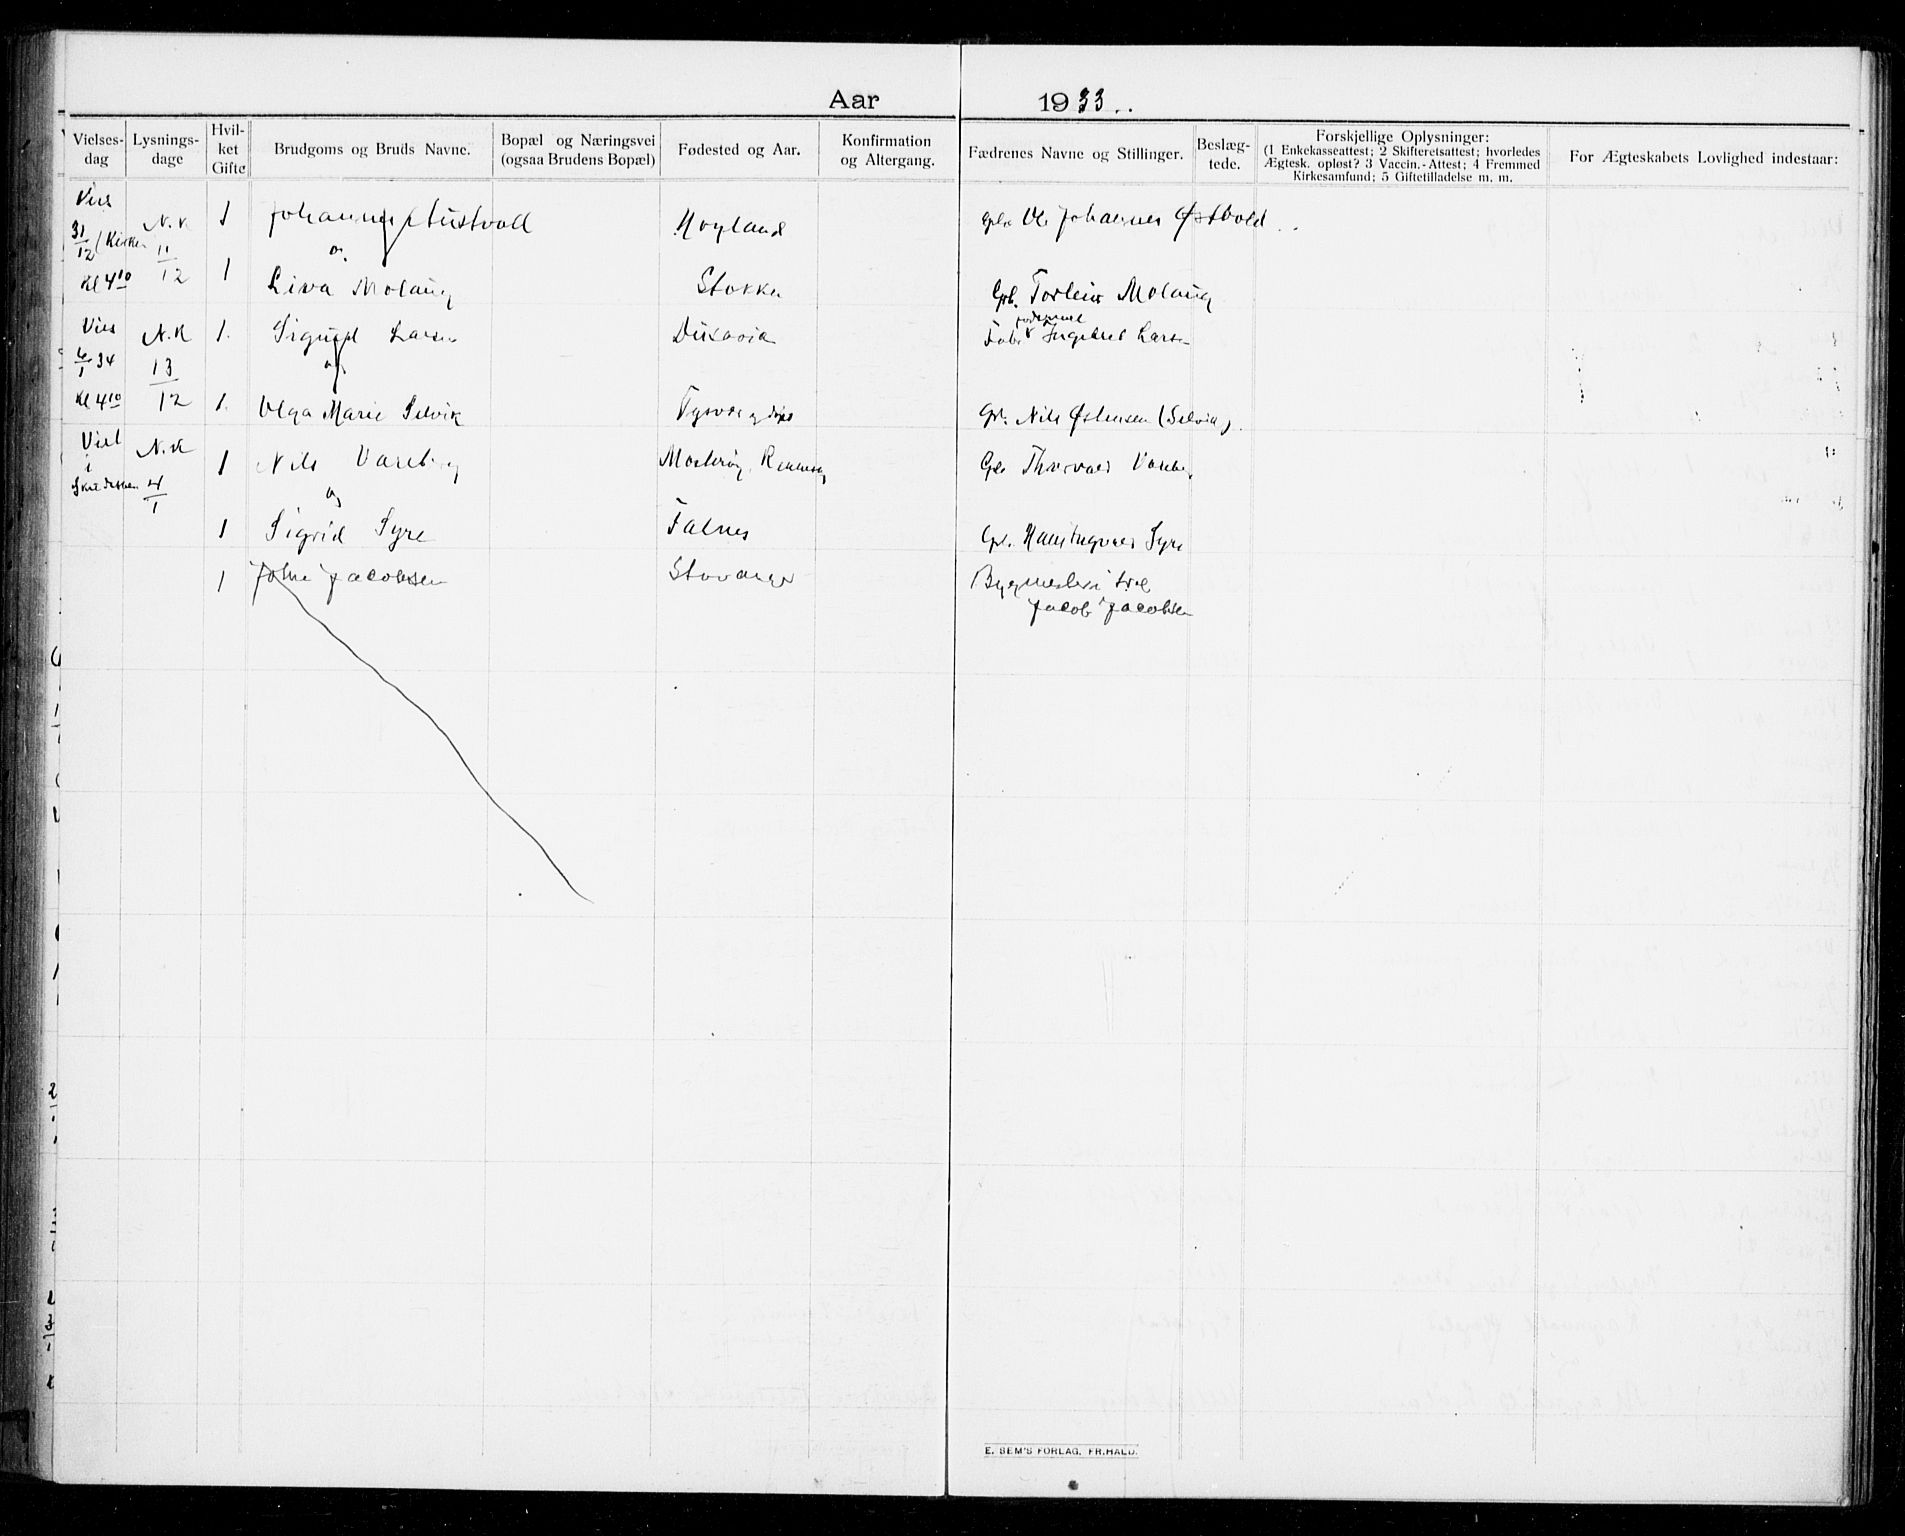 Aar 1933.
Vielses-dag
Lysnings-dage
Hvil-ket Gifte
Brudgoms og Bruds Navne.
Bopæl og Næringsvei (ogsaa Brudens Bopæl)
Fødested og Aar.
Konfirmation og Altergang.
Fædrenes Navne og Stillinger.
Beslæg-tede.
Forskjellige Oplysninger:
(1 Enkekasseattest; 2 Skifteretsattest; hvorledes
Ægtesk. opløst? 3 Vaccin.-Attest; 4 Fremmed
Kirkesamfund; 5 Giftetilladelse m. m.
For Ægteskabets Lovlighed indestaar:
Vies 31/12 i Kirken Kl 4 10 N.K 11/12
1 Johannes Austvoll Høyland Gbr. Ole Johannes Østbold
og
1 Liva Molaug Stokka Gbr. Torleiv Molaug
Vies 6/1 34 Kl 4 10 N.K 13/12
1. Sigurd Larsen Dusavik Ingebret Larsen
og
1. Olga Marie Selvik Tysvær Gbr. Nils Østensen (Selvik).
Viet i N.K 4/1
1 Nils Vareberg Mosterøy, Rennesøy Gbr Thorvald Vareberg
og
1 Sigrid Syre Falnes Gbr. Syre
1 John Jacobsen Stavanger Bygmester
Jacob Jacobsen
E. SEM'S FORLAG, FR.HALD.